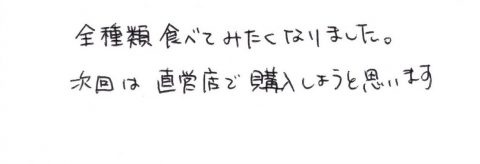 全種類食べてみたくなりました。
次回は直営店で購入しようと思います